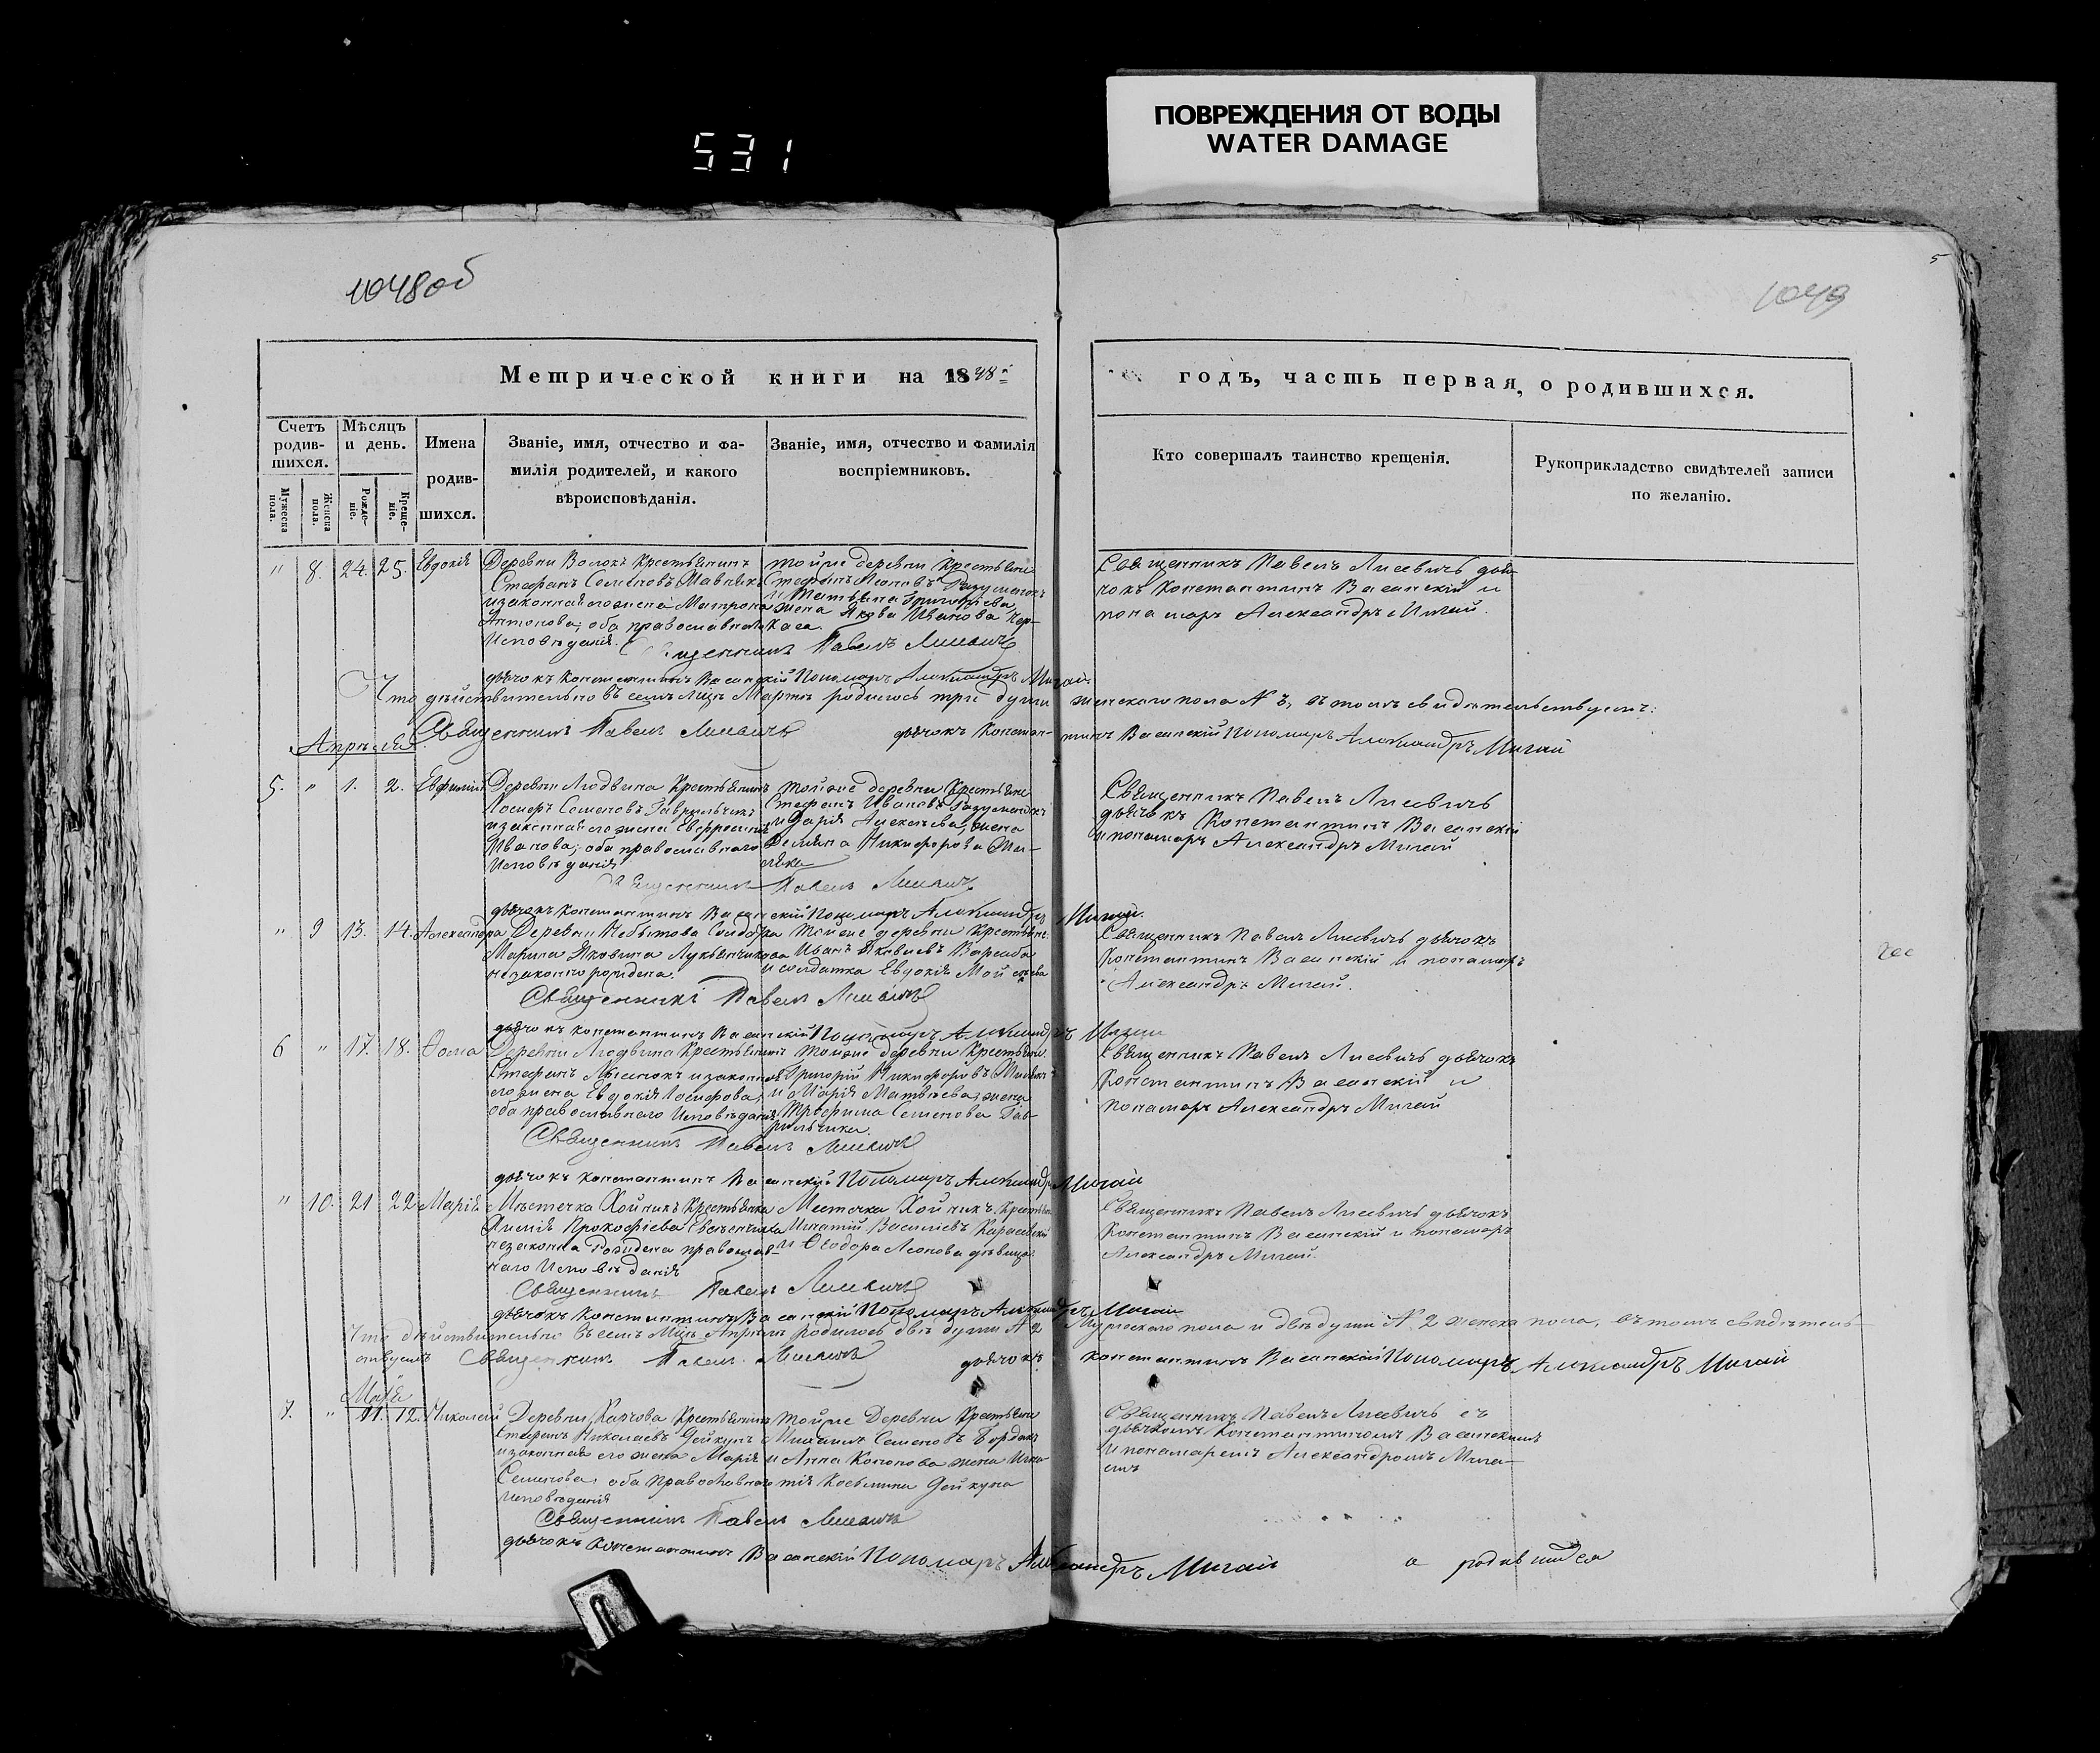 ПОВРЕЖДЕНИЯ ОТ ВОДЫ
WATER DAMAGE
531
1048об
1049
5
Метрической книги на 1848
годъ, часть первая, о родившихся.
Счетъ родив-шихся.
Мужеска пола.
Женска пола.
Мѣсяцъ и день.
Рожде-ніе.
Креще-ніе.
Имена родив-шихся.
Званіе, имя, отчество и фа-
милія родителей, и какого
вѣроисповѣданія.
Званіе, имя, отчество и фамилія
воспріемниковъ.
Кто совершалъ таинство крещенія.
Рукоприкладство свидѣтелей записи
по желанію.
" 8. 24. 25. Евдокія
Деревни Волокъ Крестьянинъ
Стефанъ Семеновъ
и законная его жена Матрона
Антонова, оба православнаго
Исповѣданія.
тойже деревни крестьяне
Стефанъ Леоновъ
и Татьяна Григорьева
жена Якова Иванова Чер-
каса.
Священникъ Павелъ Лисевичъ дья-
чокъ Константинъ Васанскій и
пономарь Александръ Мигай.
Священникъ Павелъ Лисевичъ
дьячокъ Константинъ Васанскій Пономарь Александръ Мигай
Что дѣйствительно въ семъ Мцѣ Мартѣ родилось три души женскаго пола № 3, въ томъ свидѣтельствуемъ:
Священникъ Павелъ Лисевичъ дьячокъ Константинъ Васанскій Пономарь Александръ Мигай
Апрѣля
5. " 1. 2. Евфимій
Деревни Людвина Крестьянинъ
Іосифъ Семеновъ Гаврильчикъ
и законная его жена Евфросинія
Иванова, оба православнаго
Исповѣданія
тойже деревни Крестьяне
Стефанъ Ивановъ
и Дарія Алексѣева, жена
Демьяна Никифорова
Священникъ Павелъ Лисевичъ
дьячокъ Константинъ Васанскій
и пономарь Александръ Мигай
Священникъ Павелъ Лисевичъ
дьячокъ Константинъ Васанскій Пономарь Александръ Мигай.
" 9 13. 14. Александра
Деревни Небытова Солдатка
Марина Яковина Лукьянчикова
незаконно рождена.
тойже деревни Крестьяне
Иванъ Яковлевъ
и солдатка Евдокія Мойсѣева
Священникъ Павелъ Лисевичъ дьячокъ
Константинъ Васанскій и пономарь
Александръ Мигай.
Священникъ Павелъ Лисевичъ
дьячокъ Константинъ Васанскій Пономарь Александръ Мигай
6 " 17. 18. Ѳома
Деревни Людвина Крестьянинъ
Стефанъ и законная
его жена Евдокія Іосифова,
оба православнаго Исповѣданія
тойже деревни Крестьяне
Григорій Никифоровъ
и Марія Матвѣева, жена
Трофима Семенова Гав-
рильчика.
Священникъ Павелъ Лисевичъ дьячокъ
Константинъ Васанскій и
пономарь Александръ Мигай
Священникъ Павелъ Лисевичъ
дьячокъ Константинъ Васанскій Пономарь Александръ Мигай
" 10. 21 22 Марія
Мѣстечка Хойникъ Крестьянка
Прокофіева
незаконно рождена православ-
наго Исповѣданія
Местечка Хойникъ Крестьяне
Игнатій Василіевъ Карасевскій
и Ѳеодора Леонова дѣвица
Священникъ Павелъ Лисевичъ дьячокъ
Константинъ Васанскій и пономарь
Александръ Мигай.
Священникъ Павелъ Лисевичъ
дьячокъ Константинъ Васанскій Пономарь Александръ Мигай
Что дѣйствительно въ семъ Мцѣ Апрѣлѣ родилось двѣ души № 2 Мужескаго пола и двѣ души № 2 женска пола, въ томъ свидѣтель-
ствуемъ Священникъ Павелъ Лисевичъ дьячокъ Константинъ Васанскій Пономарь Александръ Мигай
Маія
7. " 11. 12. Николай
Деревни Карчова Крестьянинъ
Стефанъ Николаевъ Дейкунъ
и законная его жена Марія
Семенова, оба православнаго
исповѣданія
тойже Деревни Крестьяне
Семеновъ Бордакъ
и Анна Кононова жена Игна-
тія Косьмина Дейкуна
Священникъ Павелъ Лисевичъ съ
дьячкомъ Константиномъ Васанскимъ
и пономаремъ Александромъ Мига-
емъ
Священникъ Павелъ Лисевичъ
дьячокъ Константинъ Васанскій Пономарь Александръ Мигай
о родившихся